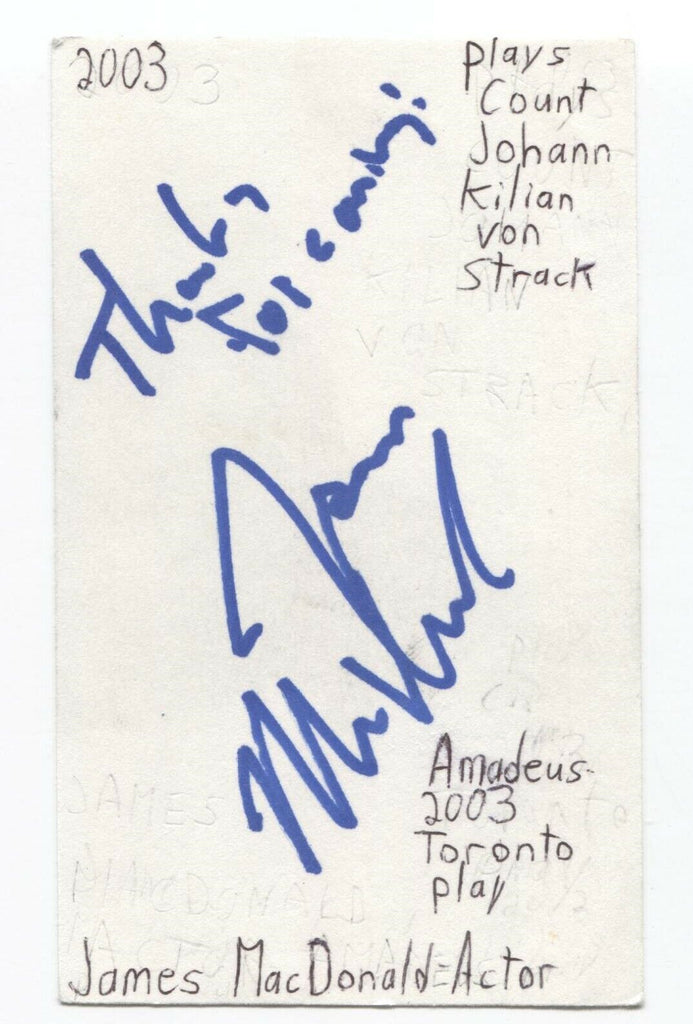 2003
plays
Count
Johann
Kilian
von
Strack
Thanks
for coming!
James
MacDonald
Amadeus-
2003
Toronto
play
James MacDonald-Actor